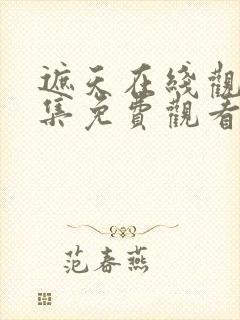 遮天在线觀
集免費觀看
范春燕